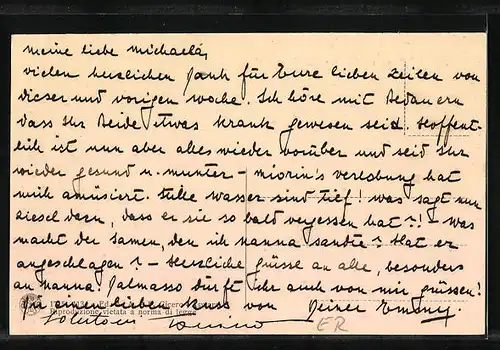 meine liebe michaela,
vielen herzlichen Dank für Eure lieben Zeilen von
dieser und vorigen woche. Ich höre mit Bedauern
dass Ihr Beide etwas krank gewesen seid. Hoffent-
lich ist nun aber alles wieder vorüber und seid Ihr
wieder gesund u. munter - verlobung hat
mich amüsiert. Stille wasser sind tief! was sagt nun
dazu, dass er sie so bald vergessen hat?! - was
macht der Samen, den ich nanna sandte? Hat er
angeschlagen? - Herzliche grüsse an alle, besonders
an nanna! Dalmasso dürft Ihr auch von mir grüssen!
Dir einen lieben Kuss von Deiner
Riproduzione vietata a norma di legge
ER